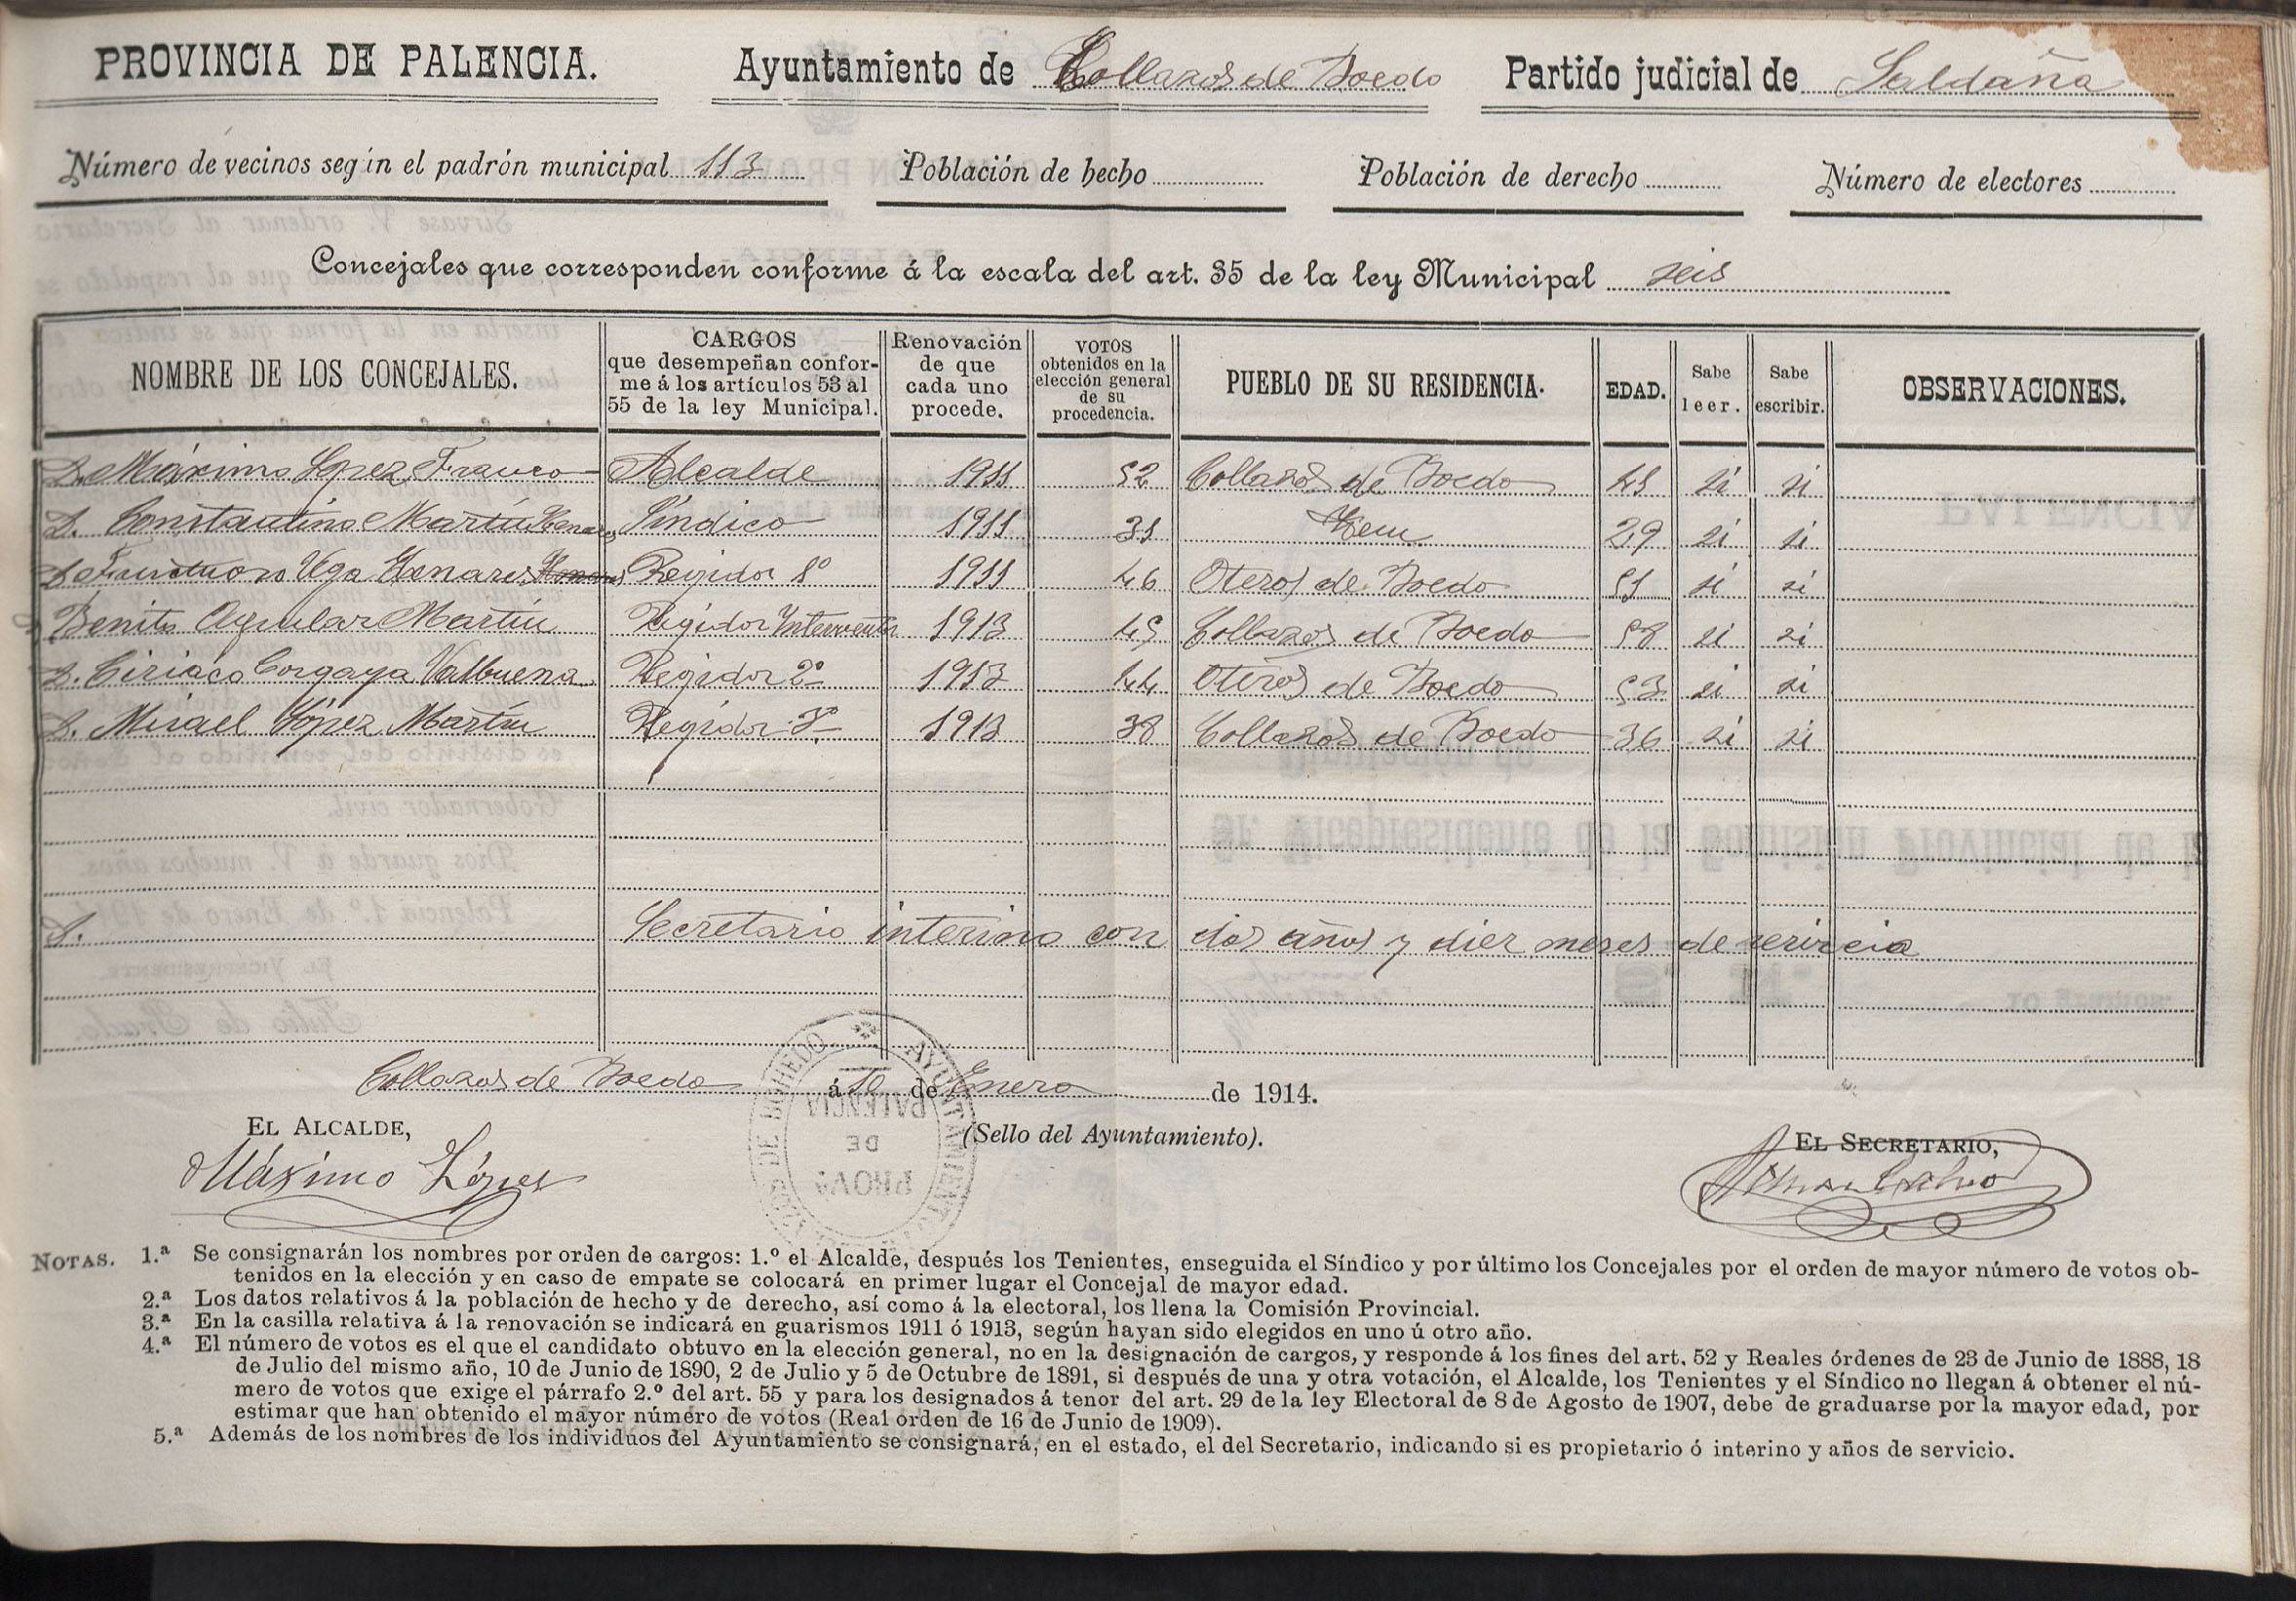 PROVINCIA DE PALENCIA. Ayuntamiento de Collazos de Boedo Partido judicial de Saldaña
Número de vecinos según el padrón municipal 113 Población de hecho Población de derecho Número de electores
Concejales que corresponden conforme á la escala del art. 35 de la ley Municipal seis
NOMBRE DE LOS CONCEJALES. CARGOS que desempeñan conforme á los artículos 53 al 55 de la ley Municipal. Renovación de que cada uno procede. VOTOS obtenidos en la elección general de su procedencia. PUEBLO DE SU RESIDENCIA. EDAD. Sabe leer. Sabe escribir. OBSERVACIONES.
D. Máximo López Franco Alcalde 1911 52 Collazos de Boedo 45 si si
D. Constantino Martín Henares Síndico 1911 31 Idem 29 si si
D. Fructuoso Vega Henares Regidor 1º 1911 46 Oteros de Boedo 51 si si
Benito Aguilar Martín Regidor Interventor 1913 45 Collazos de Boedo 58 si si
D. Ciriaco Corgaya Valbuena Regidor 2º 1913 44 Oteros de Boedo 53 si si
D. Misael López Martín Regidor 3º 1913 38 Collazos de Boedo 36 si si
D. Secretario interino con dos años y diez meses de servicio
Collazos de Boedo á 10 de Enero de 1914.
EL ALCALDE, (Sello del Ayuntamiento). EL SECRETARIO,
Máximo López
AYUNTAMIENTO DE
PROVA
DE
PALENCIA
NOTAS. 1.ª Se consignarán los nombres por orden de cargos: 1.º el Alcalde, después los Tenientes, enseguida el Síndico y por último los Concejales por el orden de mayor número de votos ob-
tenidos en la elección y en caso de empate se colocará en primer lugar el Concejal de mayor edad.
2.ª Los datos relativos á la población de hecho y de derecho, así como á la electoral, los llena la Comisión Provincial.
3.ª En la casilla relativa á la renovación se indicará en guarismos 1911 ó 1913, según hayan sido elegidos en uno ú otro año.
4.ª El número de votos es el que el candidato obtuvo en la elección general, no en la designación de cargos, y responde á los fines del art. 52 y Reales órdenes de 23 de Junio de 1888, 18
de Julio del mismo año, 10 de Junio de 1890, 2 de Julio y 5 de Octubre de 1891, si después de una y otra votación, el Alcalde, los Tenientes y el Síndico no llegan á obtener el nú-
mero de votos que exige el párrafo 2.º del art. 55 y para los designados á tenor del art. 29 de la ley Electoral de 8 de Agosto de 1907, debe de graduarse por la mayor edad, por
estimar que han obtenido el mayor número de votos (Real orden de 16 de Junio de 1909).
5.ª Además de los nombres de los individuos del Ayuntamiento se consignará, en el estado, el del Secretario, indicando si es propietario ó interino y años de servicio.